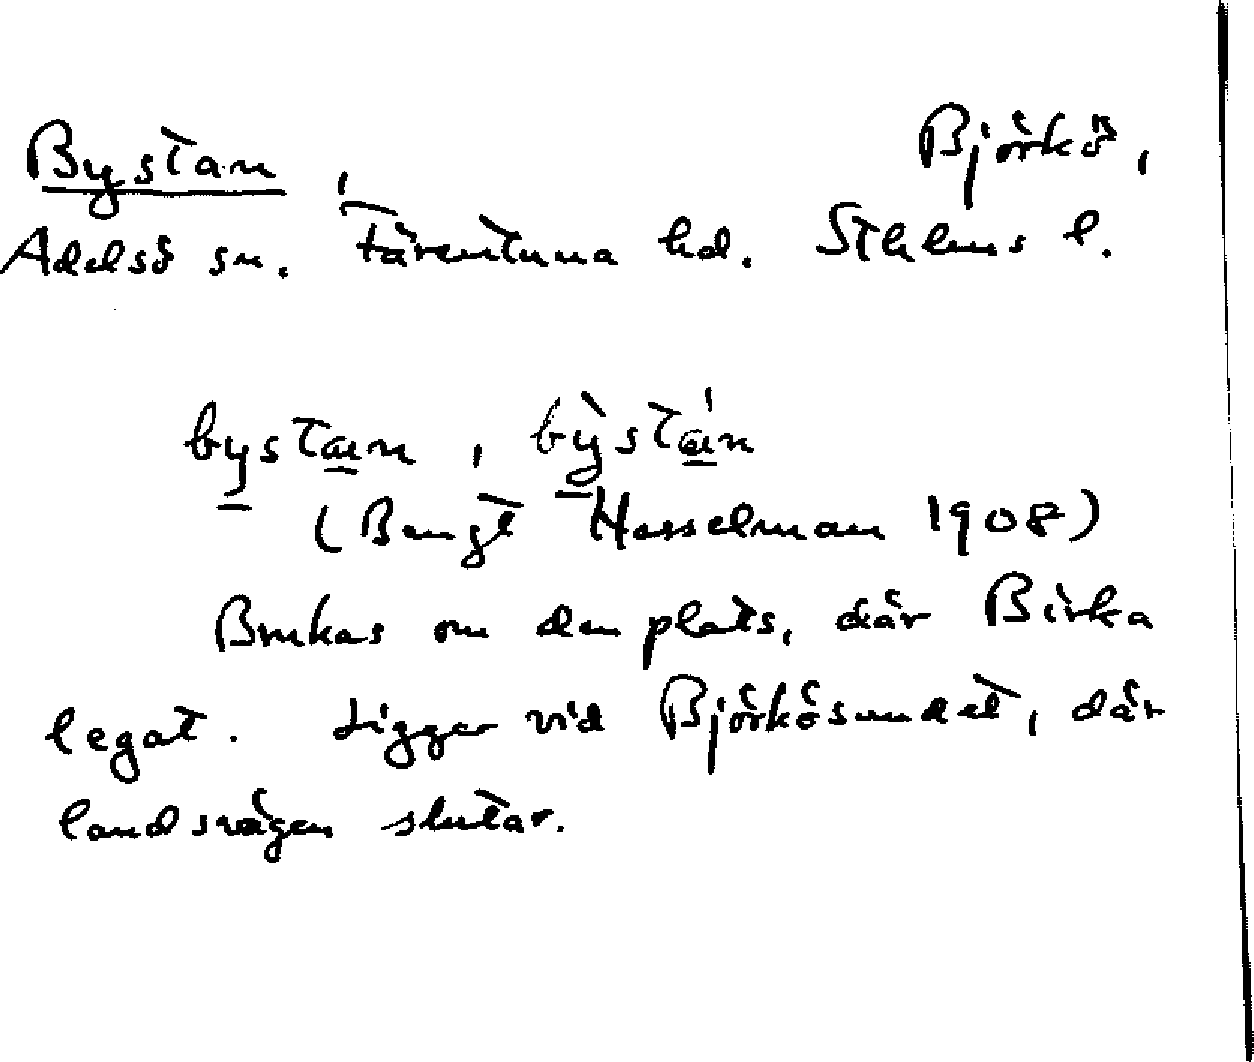 Bystan, Björkö,
Adelsö sn. Färentuna hd. Sthlms l.
bystan, by̖stán
(Bengt Hesselman 1908)
Brukas om den plats, där Birka
legat. Ligger vid Björkösundet, där
landsvägen slutar.